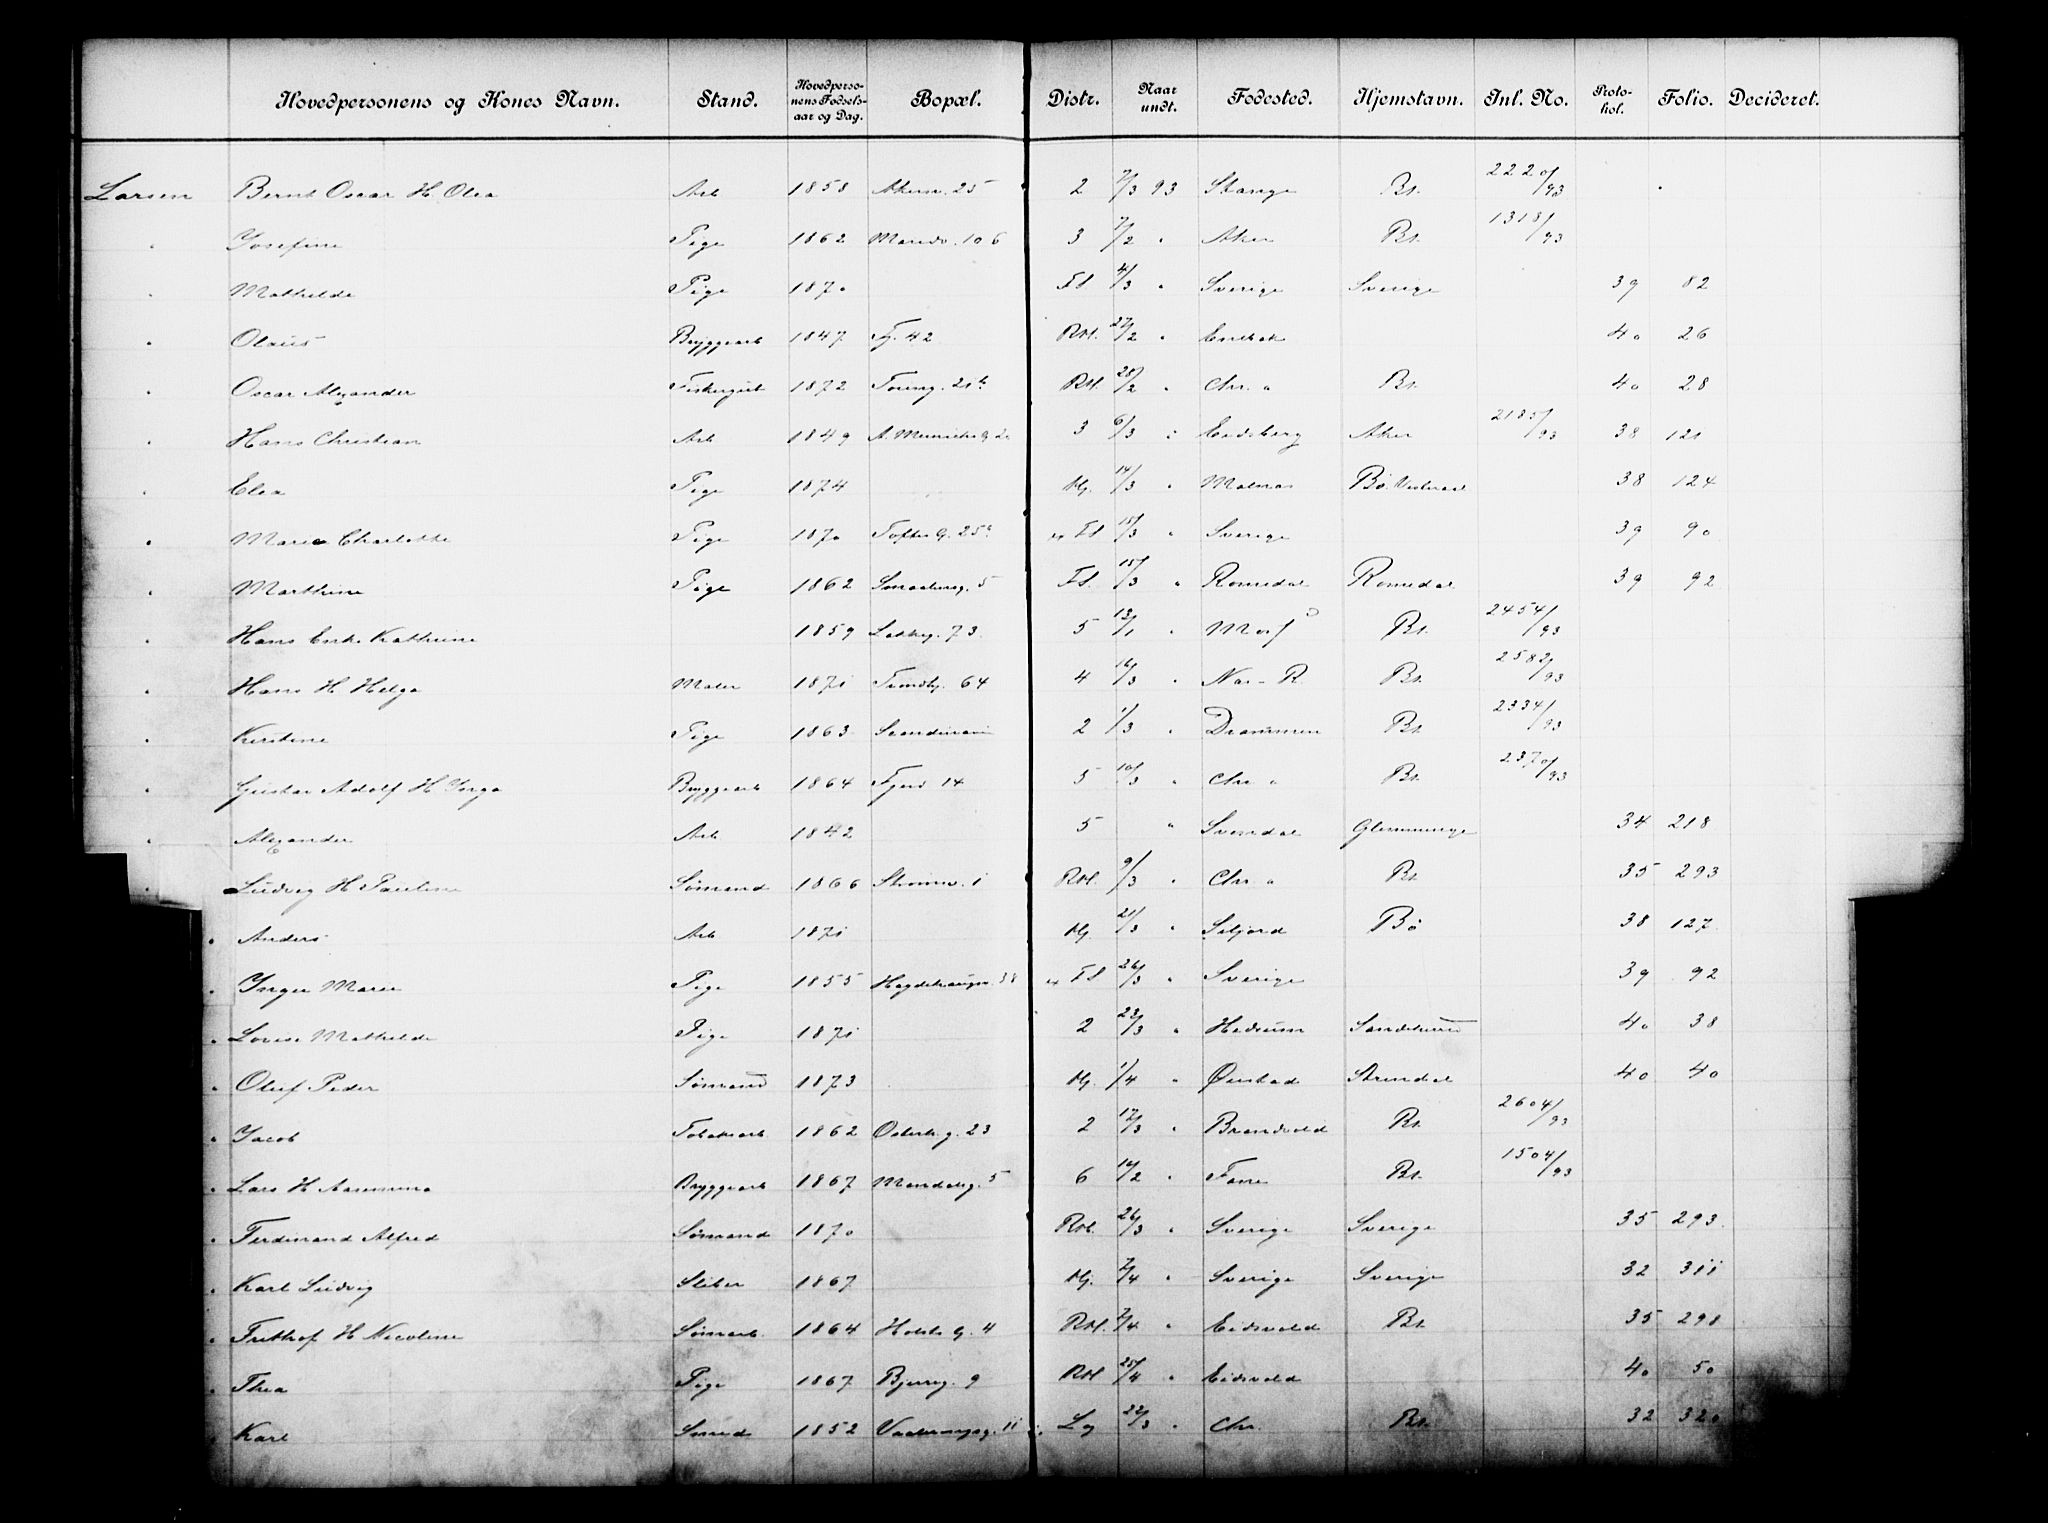 Hovedpersonens og Kones Navn. Stand. Hovedperso-nens Fødsels-aar og Dag. Bopæl. Distr. Naar undt. Fødested. Hjemstavn. Inl. No. Proto-kol. Folio. Decideret.
Larsen Bernt Oscar H Olea Arb 1858 Akersv. 25 2 7/3 93 Stange Bt. 2220/93
" Josefine Pige 1862 Maridv. 106 3 7/2 " Aker Bt. 1318/93
" Mathilde Pige 1870 Fd 4/3 " Sverige Sverige 39 82
" Olaus Bryggearb 1847 Fj. 42 RM. 27/2 " Enebak 40 26
" Oscar Alexander Fiskergut 1872 RM. 28/2 " Chr. a Bt. 40 28
" Hans Christian Arb 1849 A. Munchs G 3 6/3 " Eidsberg Aker 2185/93 38 121
" Elea Pige 1874 Hj. 14/3 " Malnæs Bø. 38 124
" Marie Charlotte Pige 1870 Toftes G. 25 Fd 15/3 " Sverige 39 90
" Marthine Pige 1862 5 Fd. 15/3 " Romedal Romedal 39 92
" Hans Enke Kathrine 1859 73. 5 13/1 " Bt. 2454/93
" Hans H Helga Maler 1871 64 4 16/3 " Næs - R. Bt. 2582/93
" Kirstine Pige 1863 2 1/3 " Drammen Bt. 2334/93
" Gustav Adolf H Inga Bryggearb 1864 14 5 10/3 " Chr a Bt. 2370/93
" Alexander Arb 1842 5 " Svendal Glemminge 34 218
" Ludvig H Pauline Sømand 1866 Strømsv. 1 RM. 9/3 " Chr a Bt 35 293
" Anders Arb 1871 Hj. 21/3 " Seljord Bø 38 127
" Inger Marie Pige 1855 38 Fd 26/3 " Sverige 39 92
" Lovise Mathilde Pige 1871 2 23/3 " Hedrum Sandeherred 40 38
" Oluf Peder Sømand 1873 Hj. 1/4 " Øiestad Arendal 40 40
" Jacob Tobakarb 1862 23 2 17/3 " Brandvold Bt. 2604/93
" Lars H Bryggearb 1867 Mandalsg. 5 6 16/2 " Bt. 1504/93
" Ferdinand Alfred Sømand 1870 RM. 26/3 " Sverige Sverige 35 293
" Karl Ludvig Sliber 1867 Hj. 7/4 " Sverige Sverige 32 311
" Frithof H Nicoline Sømarb. 1864 Holsts G. 4 RM. 7/4 " Eidsvold Bt. 35 298
" Thea Pige 1867 Bjerreg. 9 RM 25/4 " Eidsvold 40 50
" Karl Smed 1852 11 Lg 22/3 " Chr. Bt. 32 320